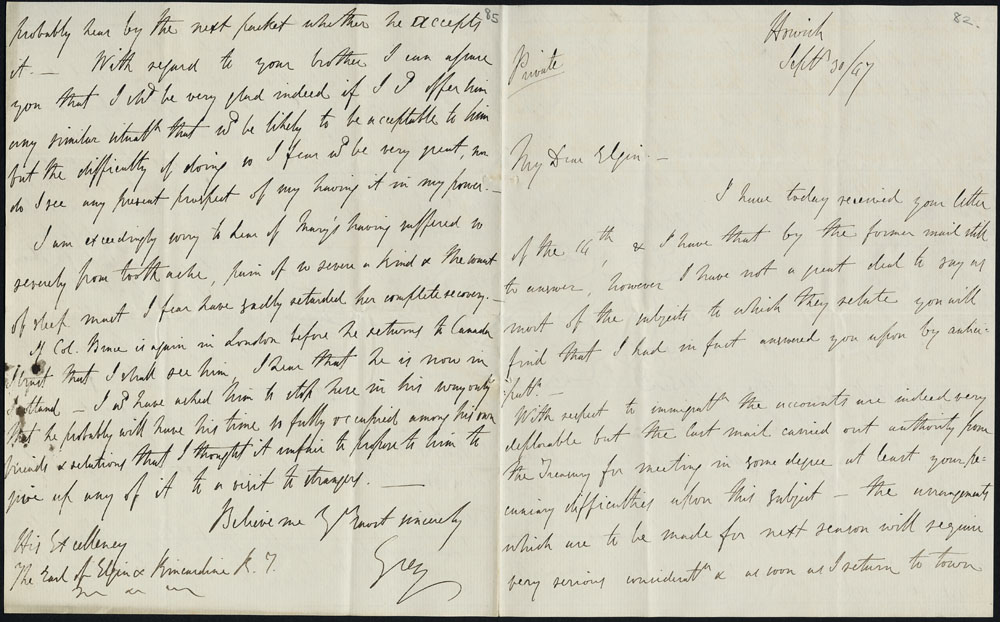 82.
Howick
Septr 30/47
Private
My Dear Elgin -
I have today received your letter
of the 14th, & I have that by the former mail still
to answer, however I have not a great deal to say as
most of the subjects to which they relate you will
find that I had in fact answered you upon by antici-
patn -
With respect to immigratn the accounts are indeed very
deplorable but the last mail carried out authority from
the Treasury for meeting in some degree at least your pe-
cuniary difficulties upon this subject - the arrangements
which are to be made for next season will require
very serious consideratn & as soon as I return to town
85
probably hear by the next packet whether he accepts
it. - With regard to your brother I can assure
you that I shd be very glad indeed if I cd offer him
any similar situatn that wd be likely to be acceptable to him
but the difficulty of doing so I fear wd be very great, nor
do I see any present prospect of my having it in my power. -
I am exceedingly sorry to hear of Mary's having suffered so
severely from tooth ache, pain of so severe a kind & the want
of sleep must I fear have sadly retarded her complete recovery. -
If Col. Bruce is again in London before he returns to Canada
I trust that I shall see him, I hear that he is now in
Scotland - I wd have asked him to stop here in his way only
that he probably will have his time so fully occupied among his own
friends & relations that I thought it unfair to propose to him to
give up any of it to a visit to strangers. -
Believe me Yrs most sincerely
Grey
His Excellency
The Earl of Elgin & Kincardine K. T.